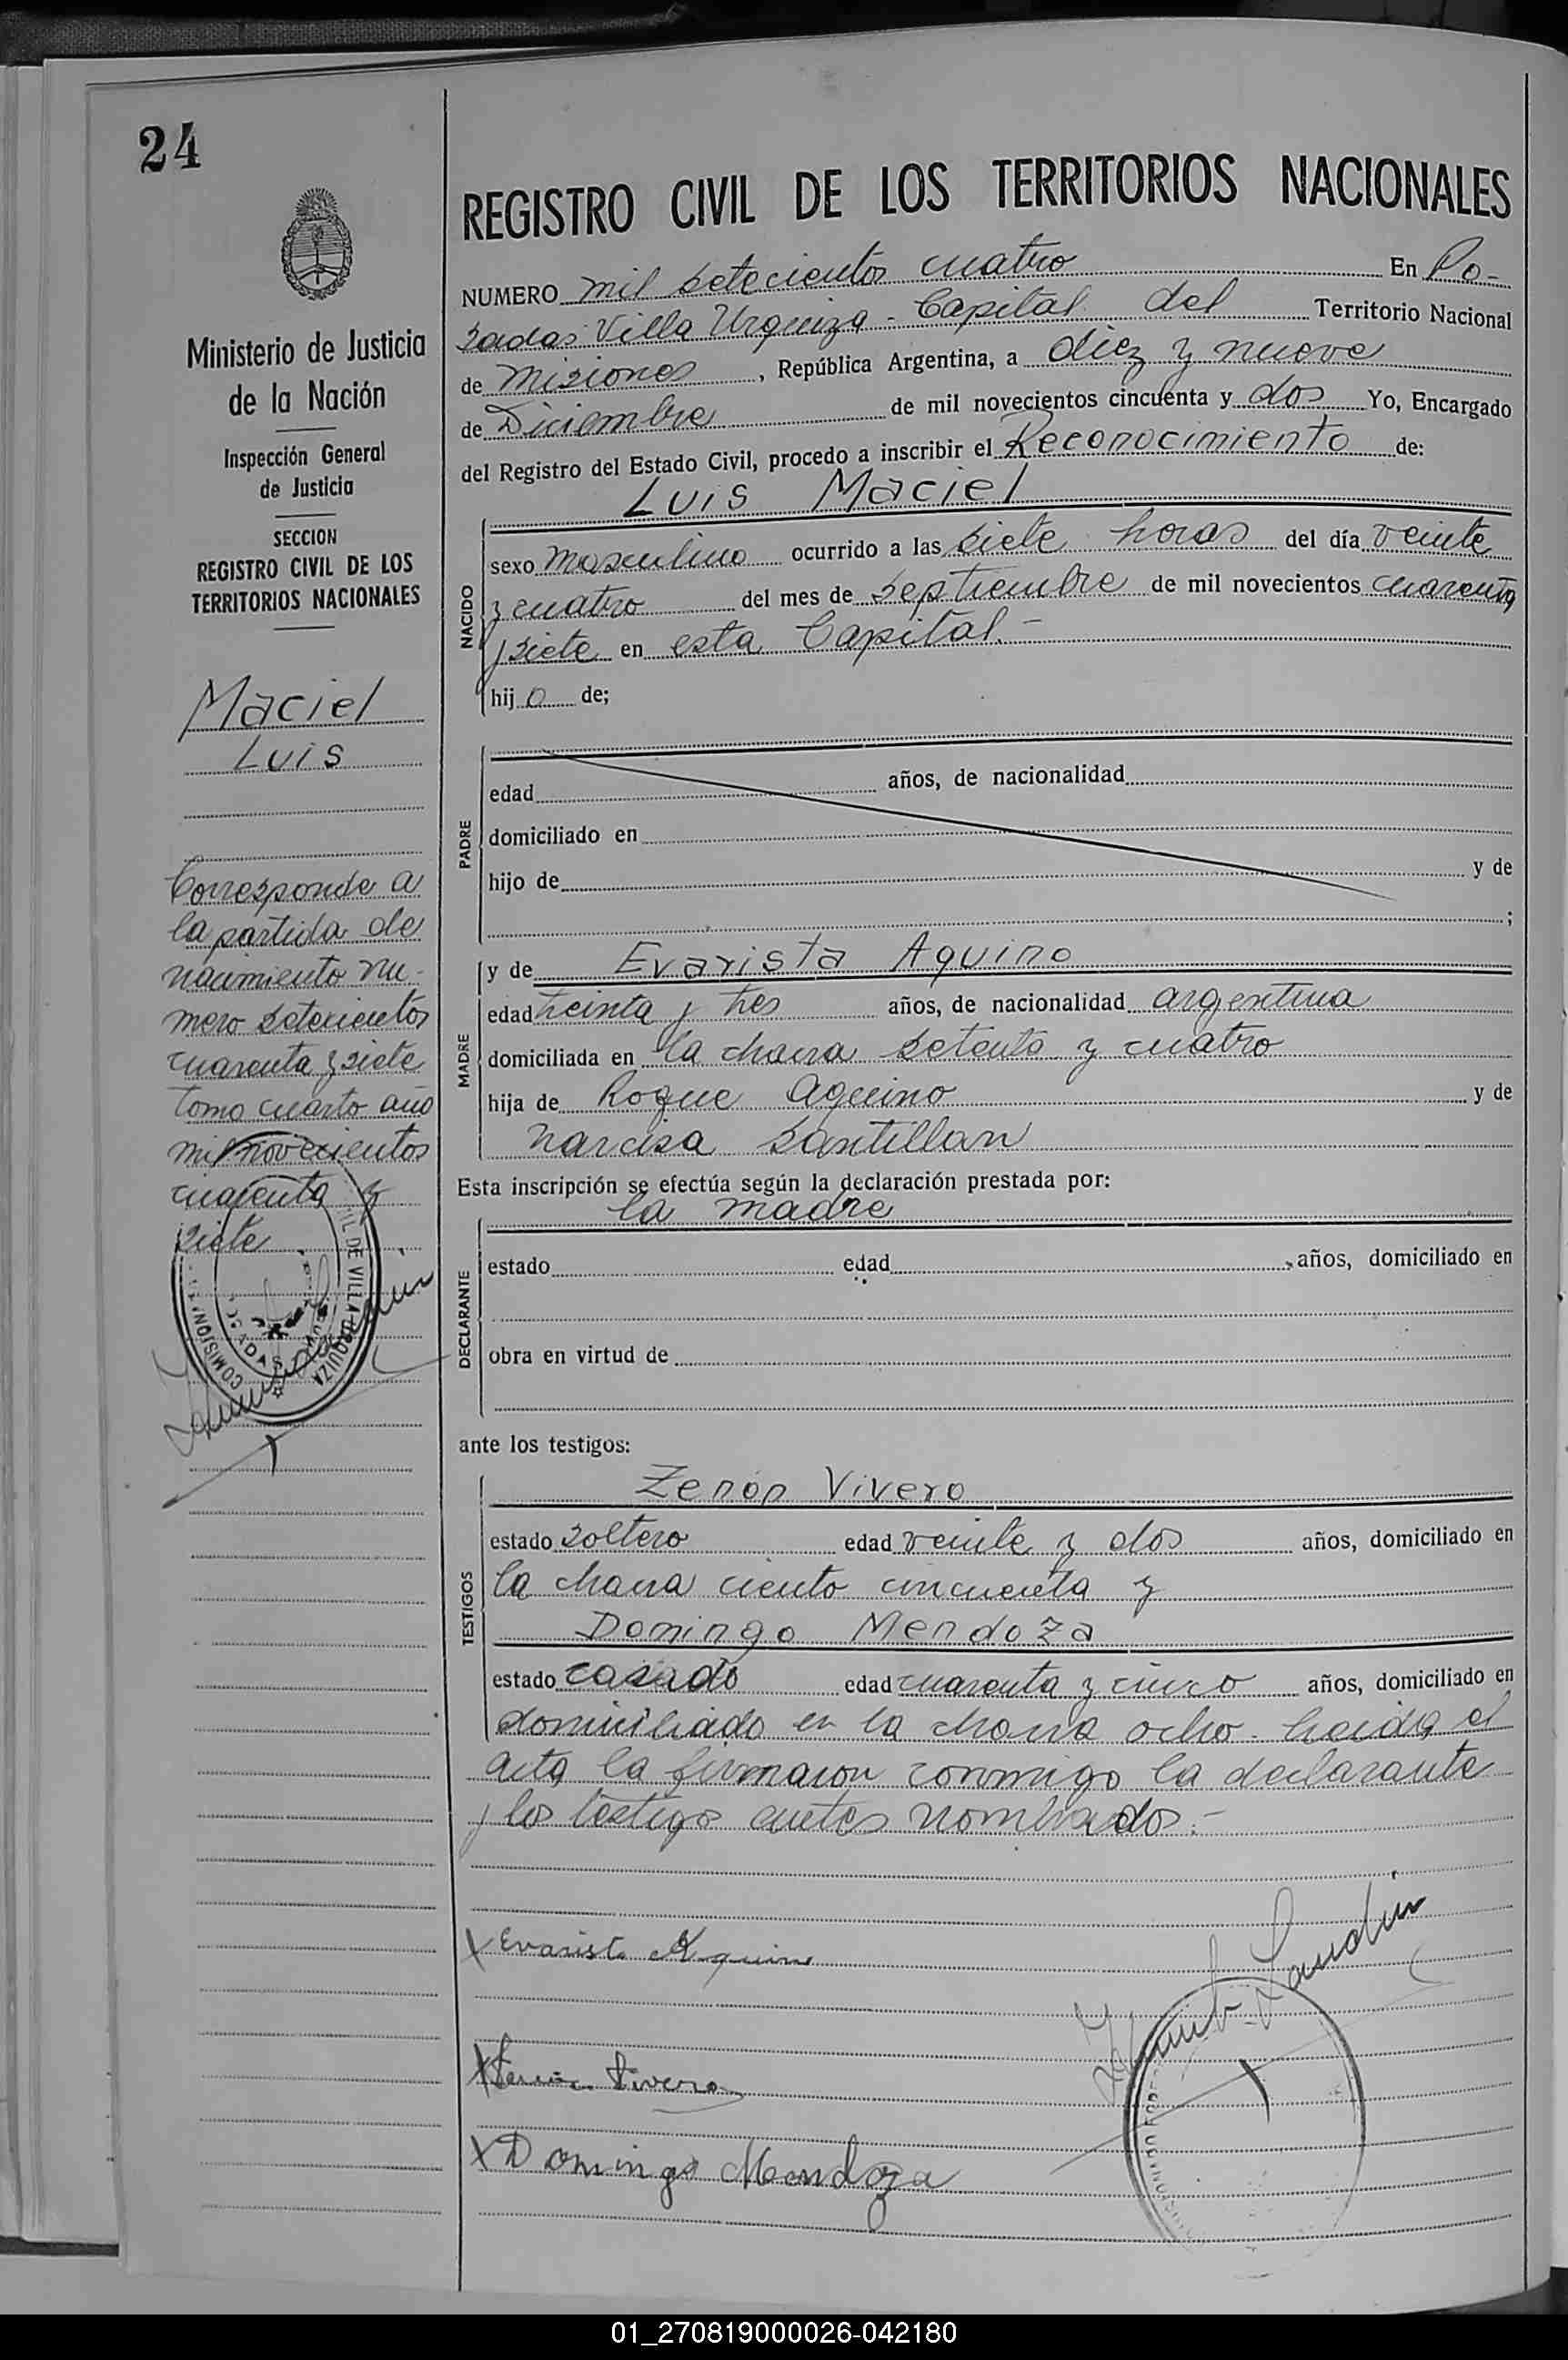 24
Ministerio de Justicia
de la Nación
Inspección General
de Justicia
SECCION
REGISTRO CIVIL DE LOS
TERRITORIOS NACIONALES
Maciel
Luis
Corresponde a
la partida de
nacimiento nu-
mero setecientos
cuarenta y siete
tomo cuarto año
mil novecientos
cuarenta y
siete
REGISTRO CIVIL DE LOS TERRITORIOS NACIONALES
NUMERO mil setecientos cuatro En Po-
sadas Villa Urquiza - Capital del Territorio Nacional
de Misiones, República Argentina, a diez y nueve
de Diciembre de mil novecientos cincuenta y dos Yo, Encargado
del Registro del Estado Civil, procedo a inscribir el Reconocimiento de:
Luis Maciel
NACIDO
sexo masculino ocurrido a las siete horas del día veinte
y cuatro del mes de septiembre de mil novecientos cuarenta
y siete en esta Capital.-
hijo de;
PADRE
edad años, de nacionalidad
domiciliado en
hijo de y de
;
MADRE
y de Evarista Aquino
edad treinta y tres años, de nacionalidad argentina
domiciliada en la chacra setenta y cuatro
hija de Roque Aquino y de
Narcisa Santillan
Esta inscripción se efectúa según la declaración prestada por:
la madre
DECLARANTE
estado edad años, domiciliado en
obra en virtud de
ante los testigos:
TESTIGOS
Zenón Vivero
estado soltero edad veinte y dos años, domiciliado en
la chacra ciento cincuenta y
Domingo Mendoza
estado casado edad cuarenta y cinco años, domiciliado en
domiciliado en la chacra ocho. Leida el
acta la firmaron conmigo la declarante
y los testigo antes nombrados.-
X Evarista Aquino
X Vivero
X Domingo Mendoza
01_270819000026-042180